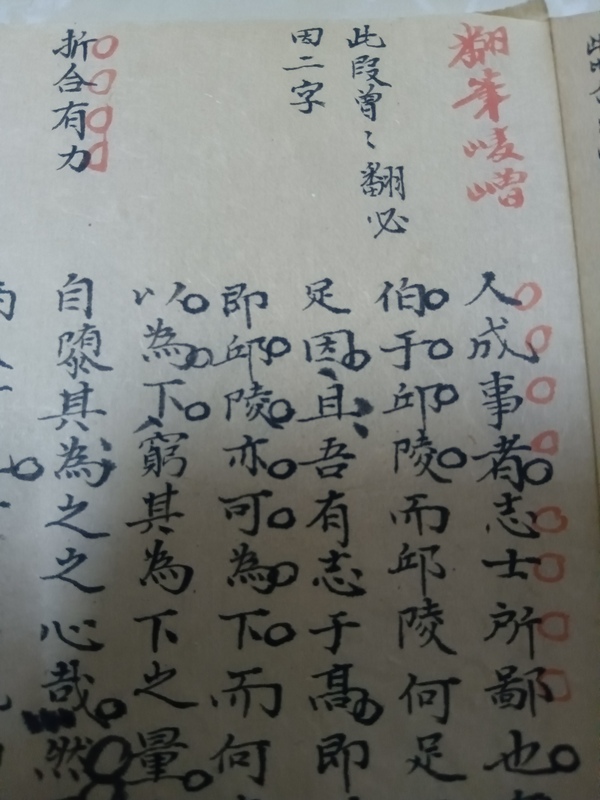 翻筆峻嶒
此段曾〻翻必
因二字
折合有力
人成事者志士所鄙也
伯于邱陵而邱陵何足
足因且吾有志于高即
即邱陵亦可為下而何
以為下窮其為下之量
自隳其為之之心哉然